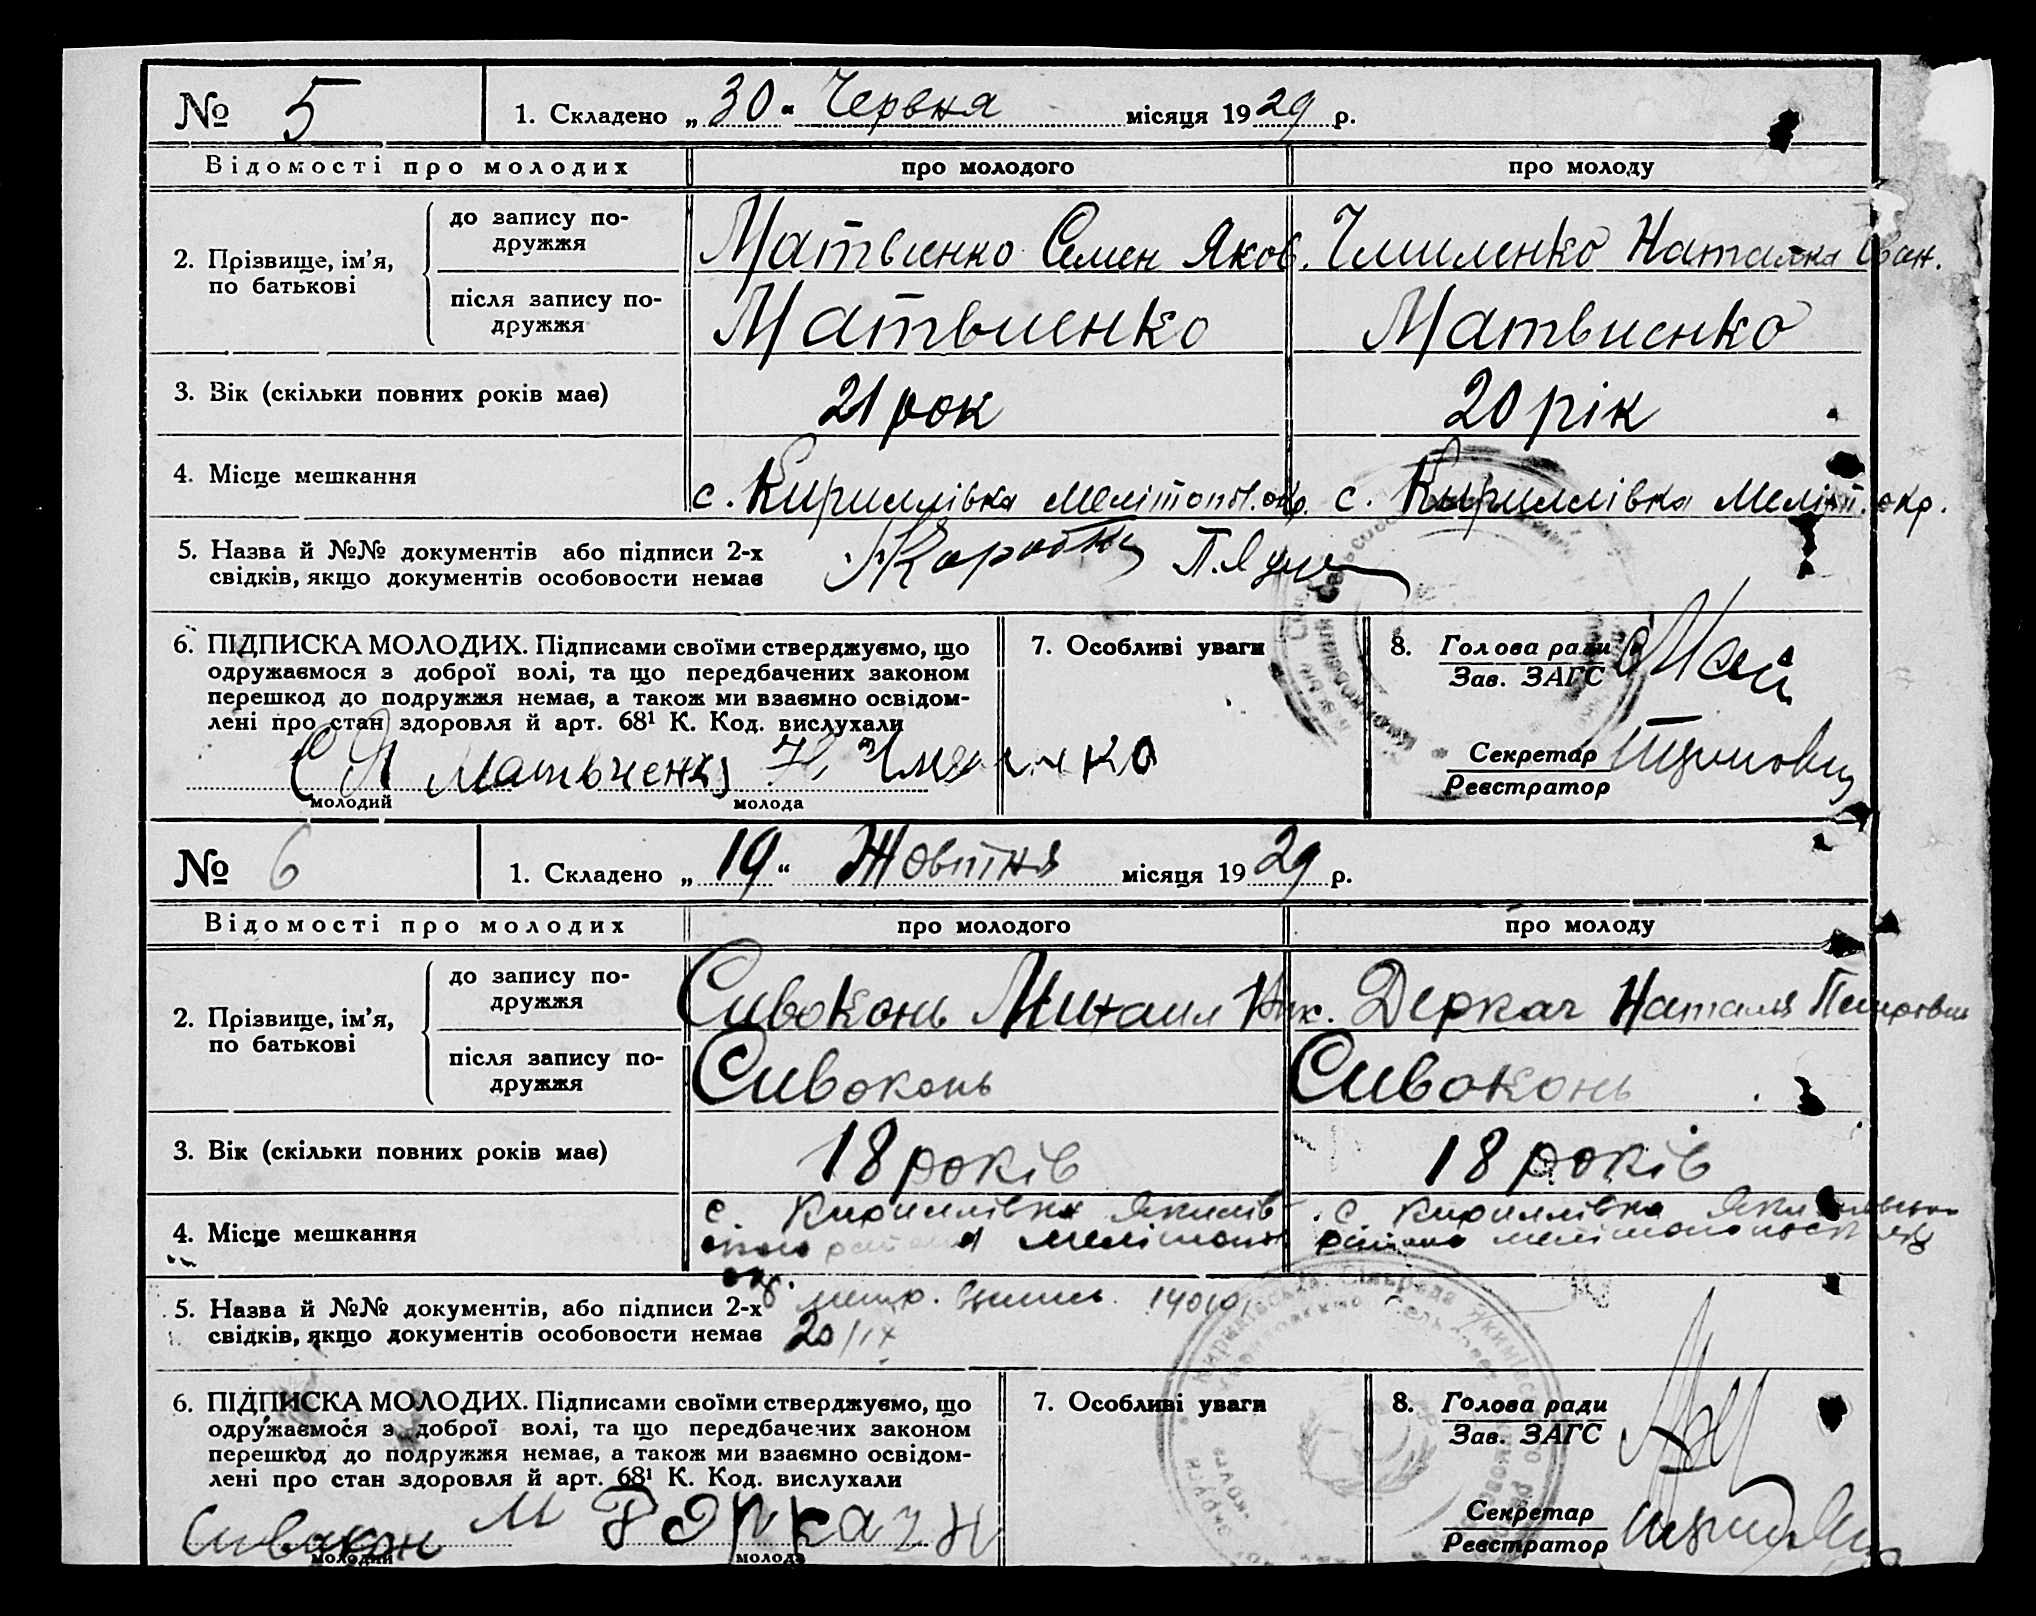 № 5 1. Складено „30“ Червня місяця 1929 р.
Відомості про молодих про молодого про молоду
2. Прізвище, ім’я, по батькові
до запису по-
дружжя
Матвиенко Семен Яков. Чмиленко Наталка Іван.
після запису по-
дружжя
Матвиенко Матвиенко
3. Вік (скільки повних років має) 21 рок 20 рік
4. Місце мешкання с. Кириллівка Мелітоп. окр. с. Кириллівка Меліт. окр.
5. Назва й №№ документів або підписи 2-х
свідків, якщо документів особовости немає
6. ПІДПИСКА МОЛОДИХ. Підписами своїми стверджуємо, що
одружаємося з доброї волі, та що передбачених законом
перешкод до подружжя немає, а також ми взаємно освідом-
лені про стан здоровля й арт. 68¹ К. Код. вислухали
С Я Матвиенко Н. Чмиленко
молодий молода
7. Особливі уваги
8. Голова ради
Зав. ЗАГС
Секретар
Реєстратор
№ 6 1. Складено „19“ Жовтня місяця 1929 р.
Відомості про молодих про молодого про молоду
2. Прізвище, ім’я, по батькові
до запису по-
дружжя
Сивоконь Михаил Ник. Деркач Наталя Петровна
після запису по-
дружжя
Сивоконь Сивоконь
3. Вік (скільки повних років має) 18 років 18 років
4. Місце мешкання
с. Кириллівка Якимів- с. Кириллівка
ского района Мелітоп. района
окр.
5. Назва й №№ документів, або підписи 2-х
свідків, якщо документів особовости немає
20/IX
6. ПІДПИСКА МОЛОДИХ. Підписами своїми стверджуємо, що
одружаємося з доброї волі, та що передбачених законом
перешкод до подружжя немає, а також ми взаємно освідом-
лені про стан здоровля й арт. 68¹ К. Код. вислухали
Сивокон М Деркач Н
молодий молода
7. Особливі уваги
8. Голова ради
Зав. ЗАГС
Секретар
Реєстратор